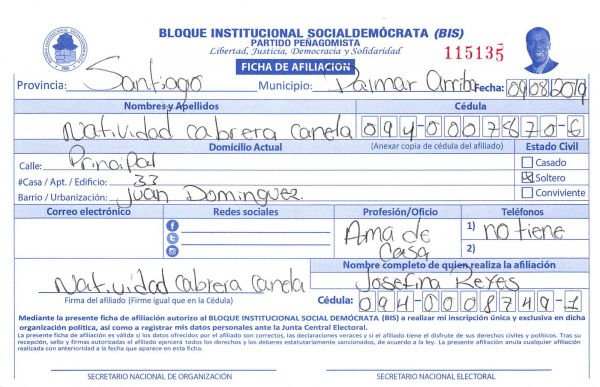 BLOQUE INSTITUCIONAL SOCIALDEMÓCRATA (BIS)
PARTIDO PEÑAGOMISTA
Libertad, Justicia, Democracia y Solidaridad
115135
FICHA DE AFILIACION
Provincia: Santiago Municipio: Palmar Arriba Fecha: 09 08 2019
Nombres y Apellidos Cédula
Natividad Cabrera Canela 094-0007870-6
Domicilio Actual (Anexar copia de cédula del afiliado) Estado Civil
Calle: Principal Casado
#Casa / Apt. / Edificio: 33 Soltero
Barrio / Urbanización: Juan Dominguez Conviviente
Correo electrónico Redes sociales Profesión/Oficio Teléfonos
Ama de Casa 1) no tiene
2)
Nombre completo de quien realiza la afiliación
Natividad Cabrera Canela Josefina Reyes
Firma del afiliado (Firme igual que en la Cédula) Cédula: 094-0008749-1
Mediante la presente ficha de afiliación autorizo al BLOQUE INSTITUCIONAL SOCIAL DEMÓCRATA (BIS) a realizar mi inscripción única y exclusiva en dicha
organización política, así como a registrar mis datos personales ante la Junta Central Electoral.
La presente ficha de afiliación es válida y los datos ofrecidos por el afiliado son correctos, las declaraciones veraces y si el afiliado tiene el disfrute de sus derechos civiles y políticos. Tras su
recepción, sello y firmas autorizadas el afiliado ejercerá todos los derechos y los deberes estatutariamente sancionados, de acuerdo a la ley. La presente afiliación anula cualquier afiliación
realizada con anterioridad a la fecha que aparece en esta ficha.
SECRETARIO NACIONAL DE ORGANIZACIÓN SECRETARIO NACIONAL ELECTORAL